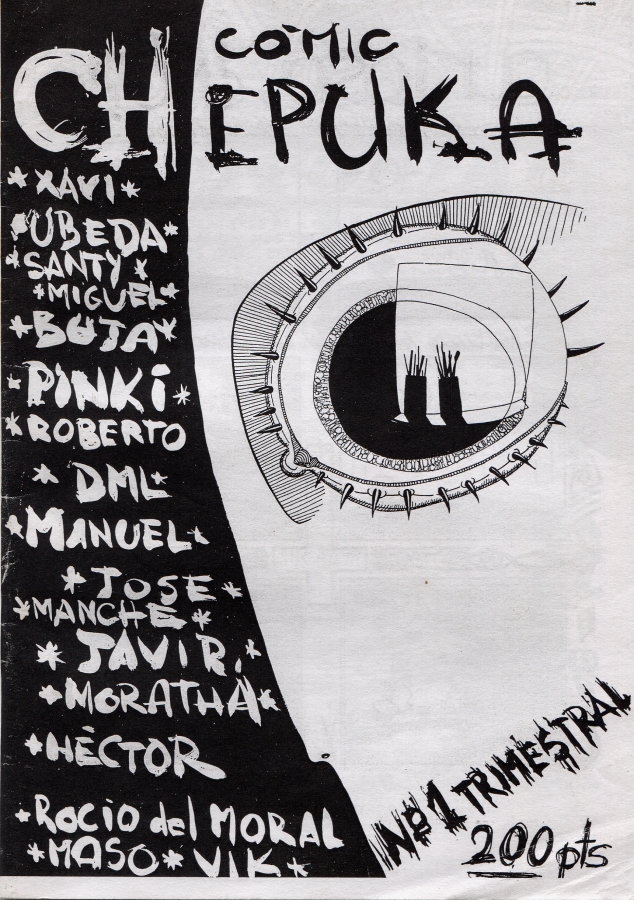 CÒMIC
CHEPUKA
*XAVI*
*UBEDA*
*SANTY*
*MIGUEL*
*BUJA*
*PINKI*
*ROBERTO
*DML*
*MANUEL*
*JOSE*
*MANCHE*
*JAVIR.
*MORATHA*
*HÈCTOR
*ROCIO del MORAL
*MASO* VIK*
Nº1 TRIMESTRAL
200 pts